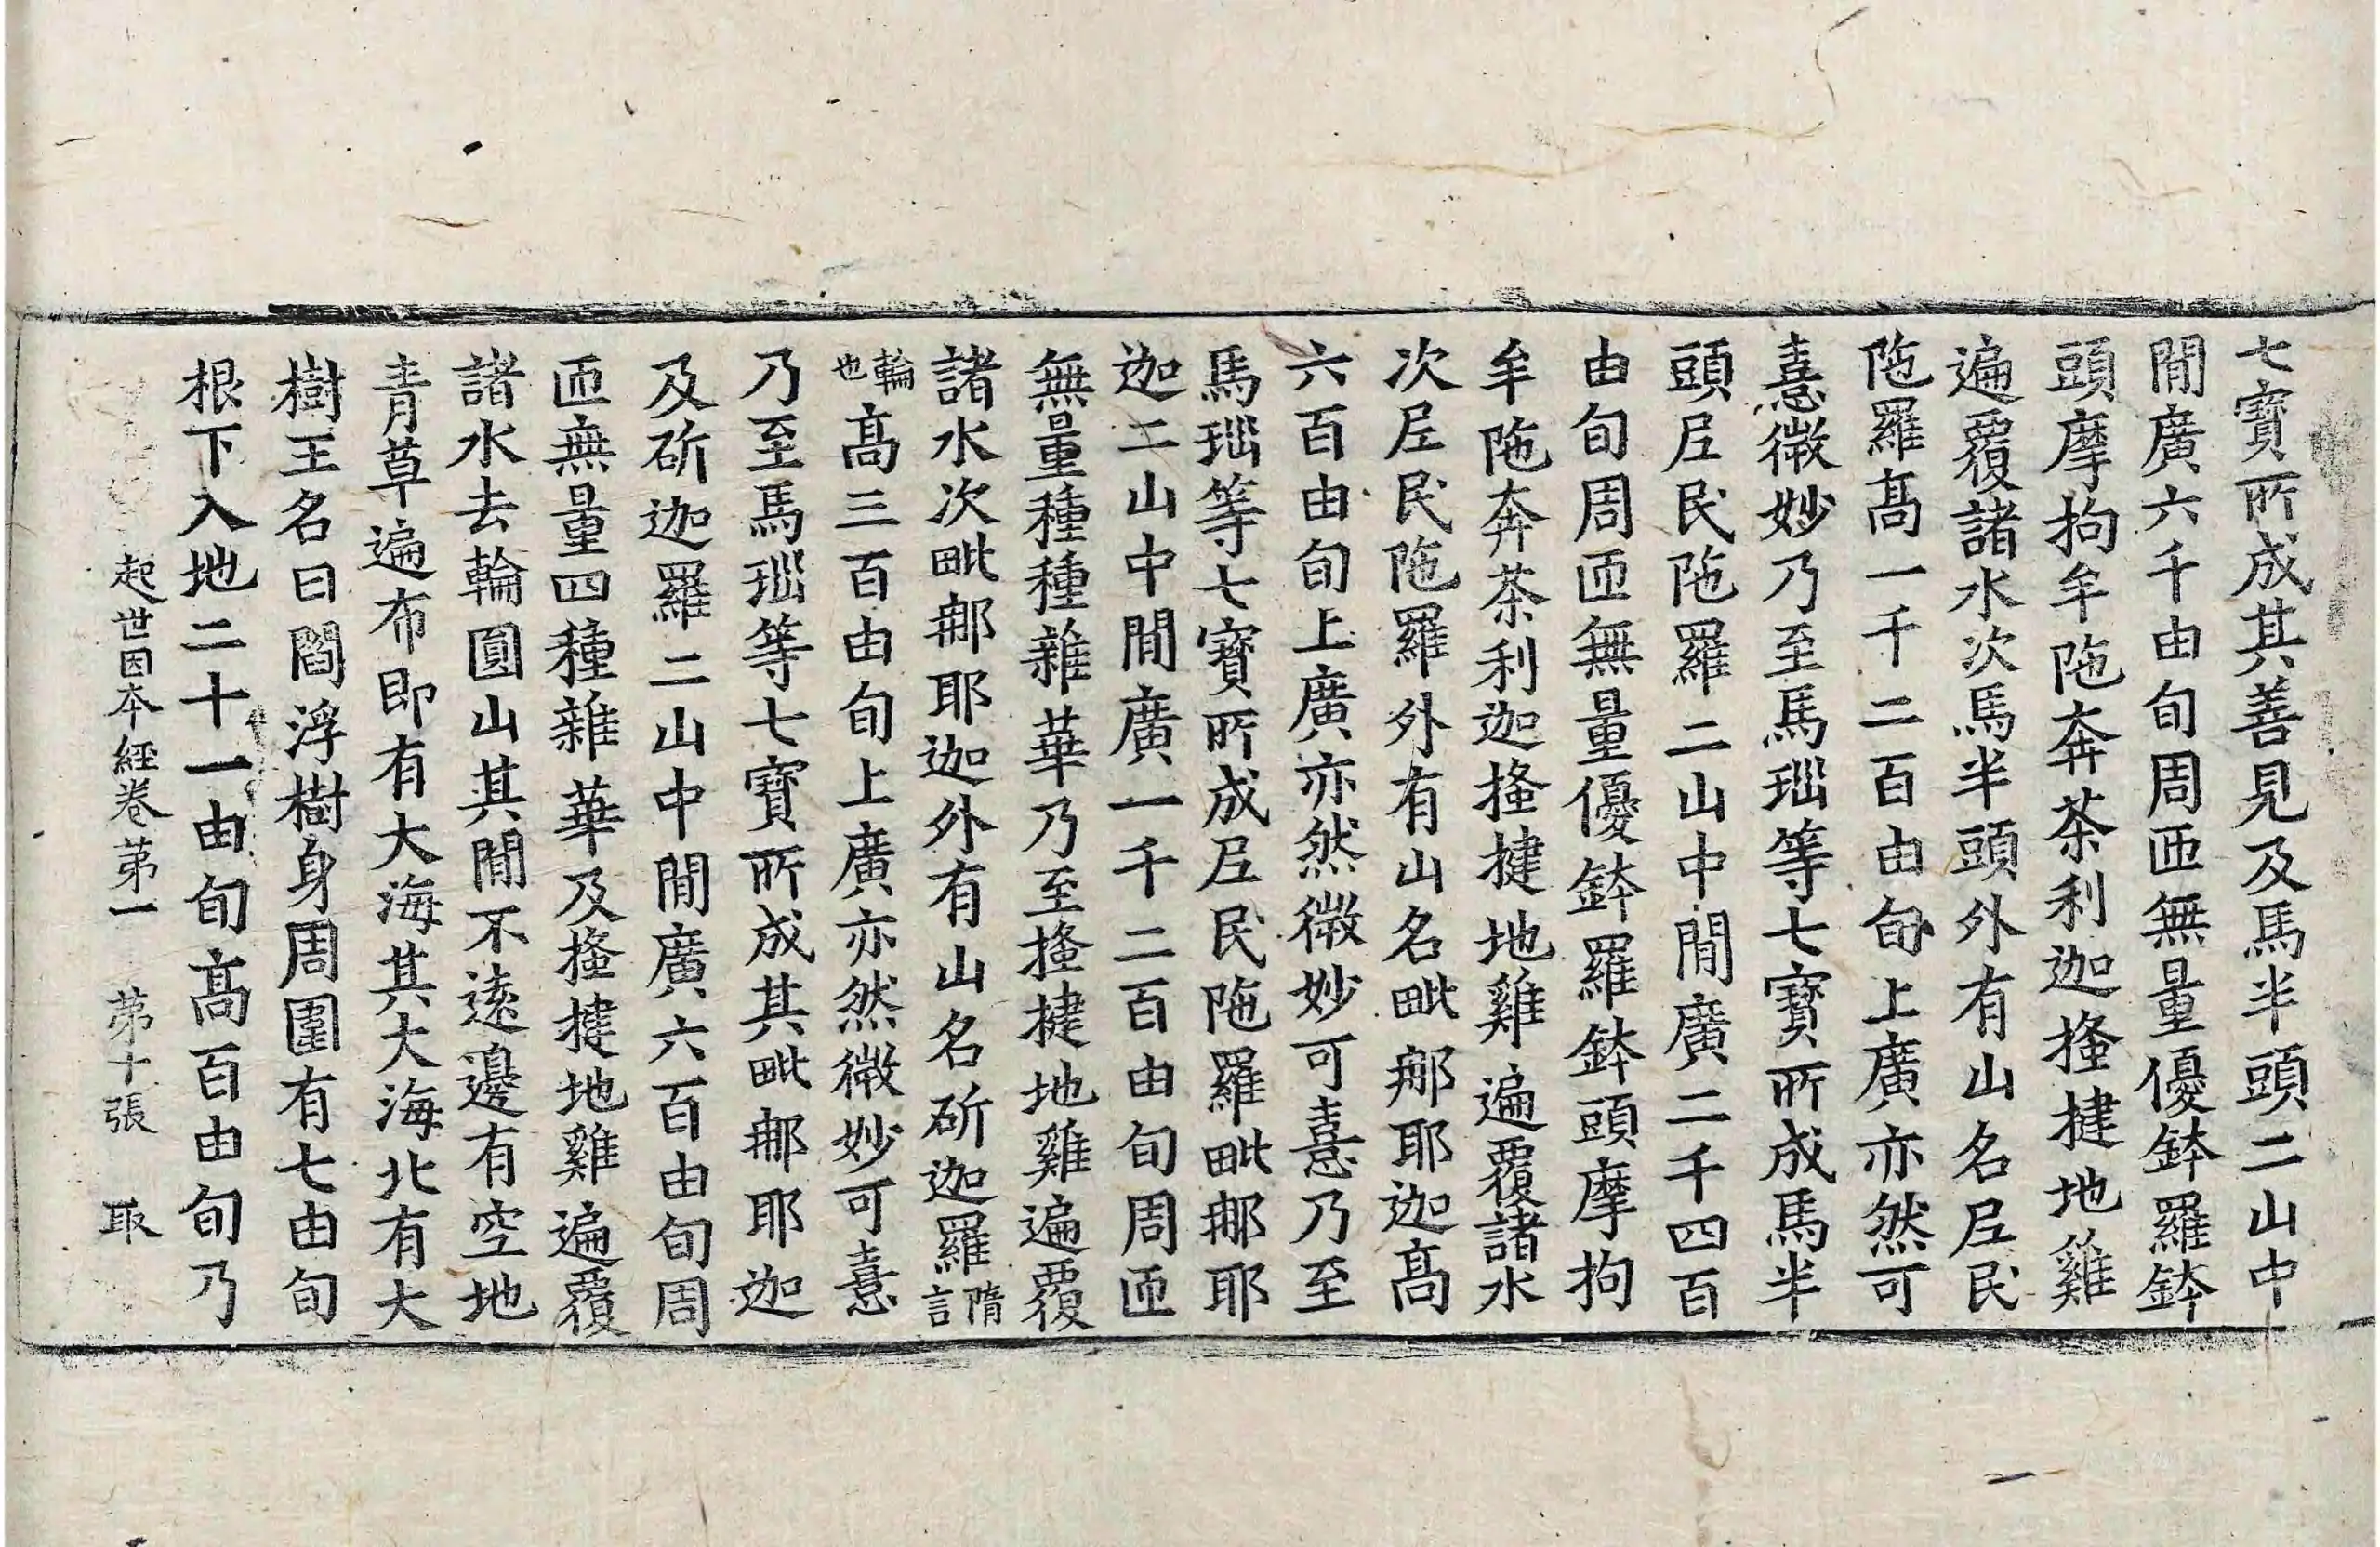 七寶所成其善見及馬半頭二山中
閒廣六千由旬周匝無量優鉢羅鉢
頭摩拘牟陁奔茶利迦搔揵地雞
遍覆諸水次馬半頭外有山名𡰱民
陁羅髙一千二百由旬上廣亦然可
憙微妙乃至馬瑙等七寶所成馬半
頭𡰱民陁羅二山中閒廣二千四百
由旬周匝無量優鉢羅鉢頭摩拘
牟陁奔茶利迦搔揵地雞遍覆諸水
次𡰱民陁羅外有山名毗那耶迦髙
六百由旬上廣亦然微妙可憙乃至
馬瑙等七寶所成𡰱民陁羅毗那耶
迦二山中閒廣一千二百由旬周匝
無量種種雜華乃至搔揵地雞遍覆
諸水次毗那耶迦外有山名斫迦羅隋言
輪也髙三百由旬上廣亦然微妙可憙
乃至馬瑙等七寶所成其毗那耶迦
及斫迦羅二山中閒廣六百由旬周
匝無量四種雜華及搔揵地雞遍覆
諸水去輪圓山其閒不遠邊有空地
青草遍布即有大海其大海北有大
樹王名曰閻浮樹身周圍有七由旬
根下入地二十一由旬髙百由旬乃
起世因本經卷第一 第十張 取